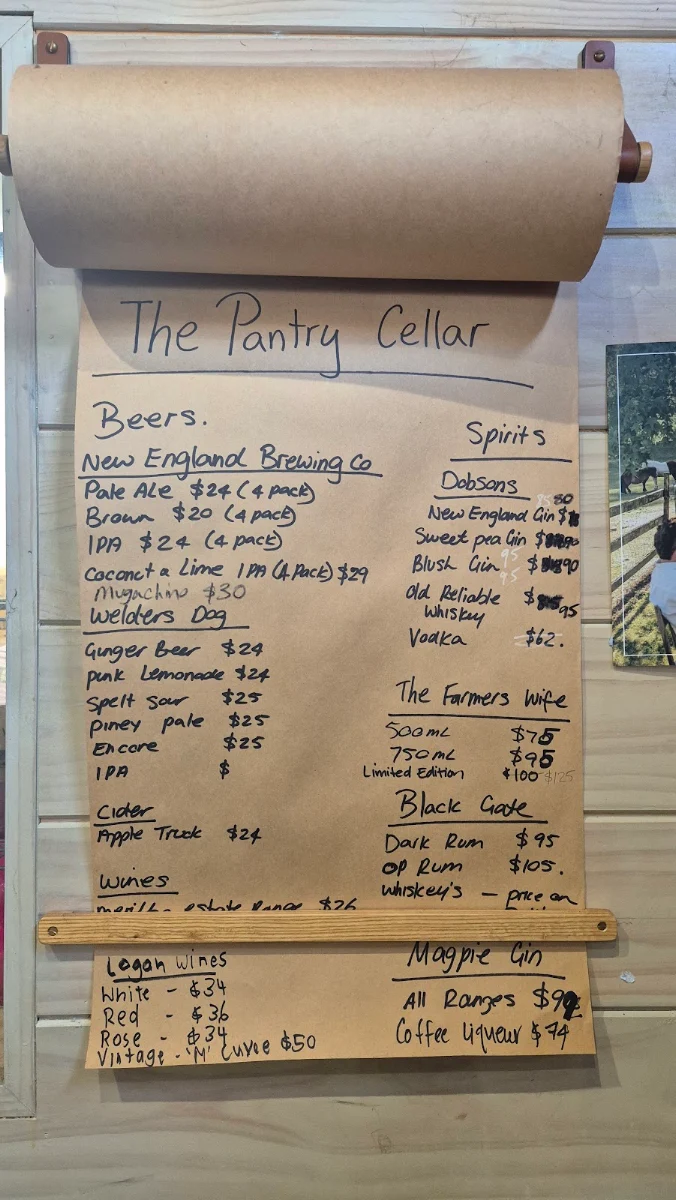 The Pantry Cellar
Beers.
New England Brewing Co
Pale Ale $24 (4 pack)
Brown $20 (4 pack)
IPA $24 (4 pack)
Coconut a Lime IPA (4 Pack) $29
$30
Welders Dog
Ginger Beer $24
pink Lemonade $24
Spelt Sour $25
piney pale $25
Encore $25
IPA $
Cider
Apple Truck $24
Wines
estate Range $26
Logan Wines
White - $34
Red - $36
Rose - $34
Vintage - 'M' Cuvee $50
Spirits
Dobsons
New England Gin $ 80
Sweet pea Gin $ 90
Blush Gin 95 $ 90
95
Old Reliable $ 95
Whiskey
Vodka $62.
The Farmers Wife
500mL $75
750mL $95
Limited Edition $100 $125
Black Gate
Dark Rum $95
OP Rum $105.
Whiskey's - price on
Magpie Gin
All Ranges
Coffee Liqueur $74